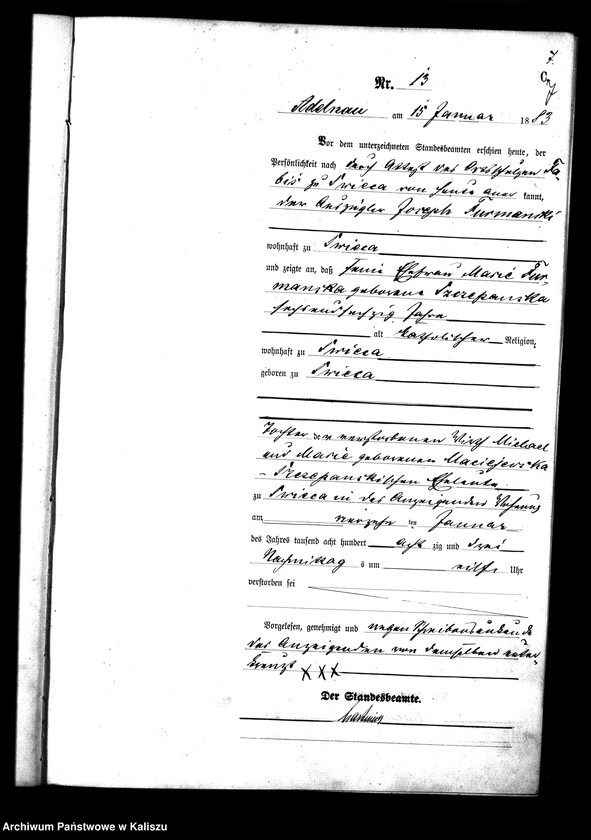 7.
Nr. 13
Adelnau am 15 Januar 1883
Vor dem unterzeichneten Standesbeamten erschien heute, der
Persönlichkeit nach durch Attest des Ortsschulzen
zu von heute kannt,
der Auszügler Joseph Furmanski
wohnhaft zu
und zeigte an, daß seine Ehefrau Marie Fur-
manska geborene Szczepanska
sechsundsechzig Jahre
alt katholischer Religion,
wohnhaft zu
geboren zu
Tochter der verstorbenen Wirth Michael
und Marie geborenen Maciejewska
- Szczepanskischen Eheleute
zu in des Anzeigenden Wohnung
am vierzehn ten Januar
des Jahres tausend acht hundert acht zig und drei
Nachmittag s um eilf Uhr
verstorben sei
Vorgelesen, genehmigt und wegen Schreibensunkunde
des Anzeigenden von demselben unter-
kreuzt XXX
Der Standesbeamte.
Archiwum Państwowe w Kaliszu